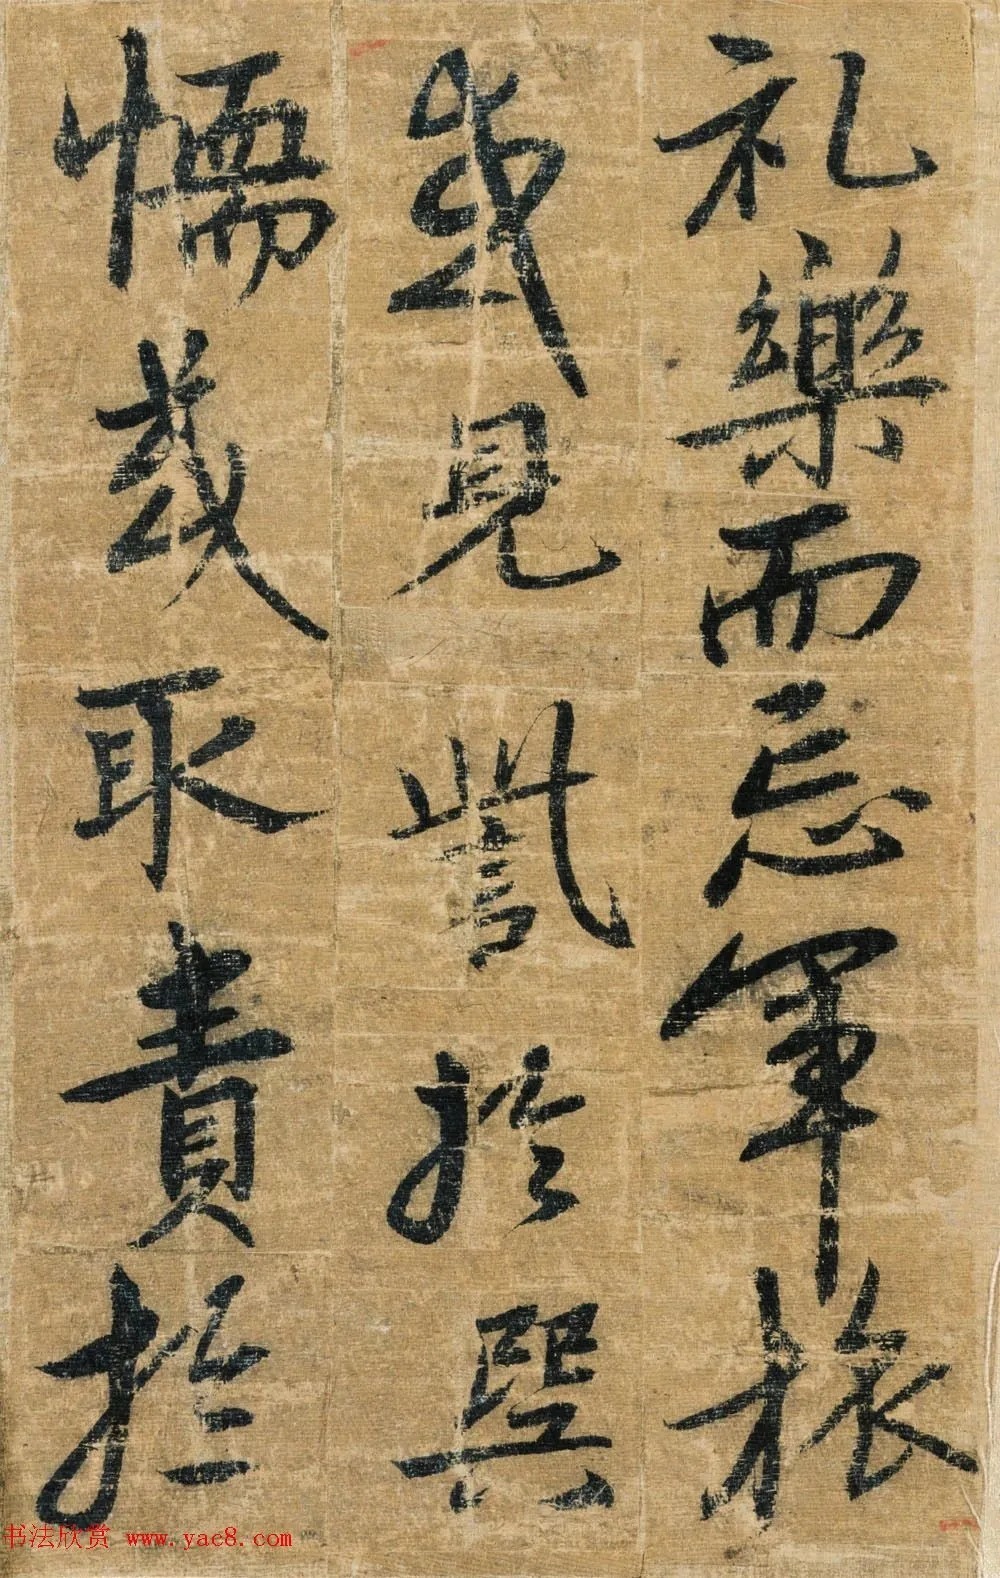 礼樂而忘軍旅
或見訾於巽
懦或取責於
书法欣赏 www.yac8.com